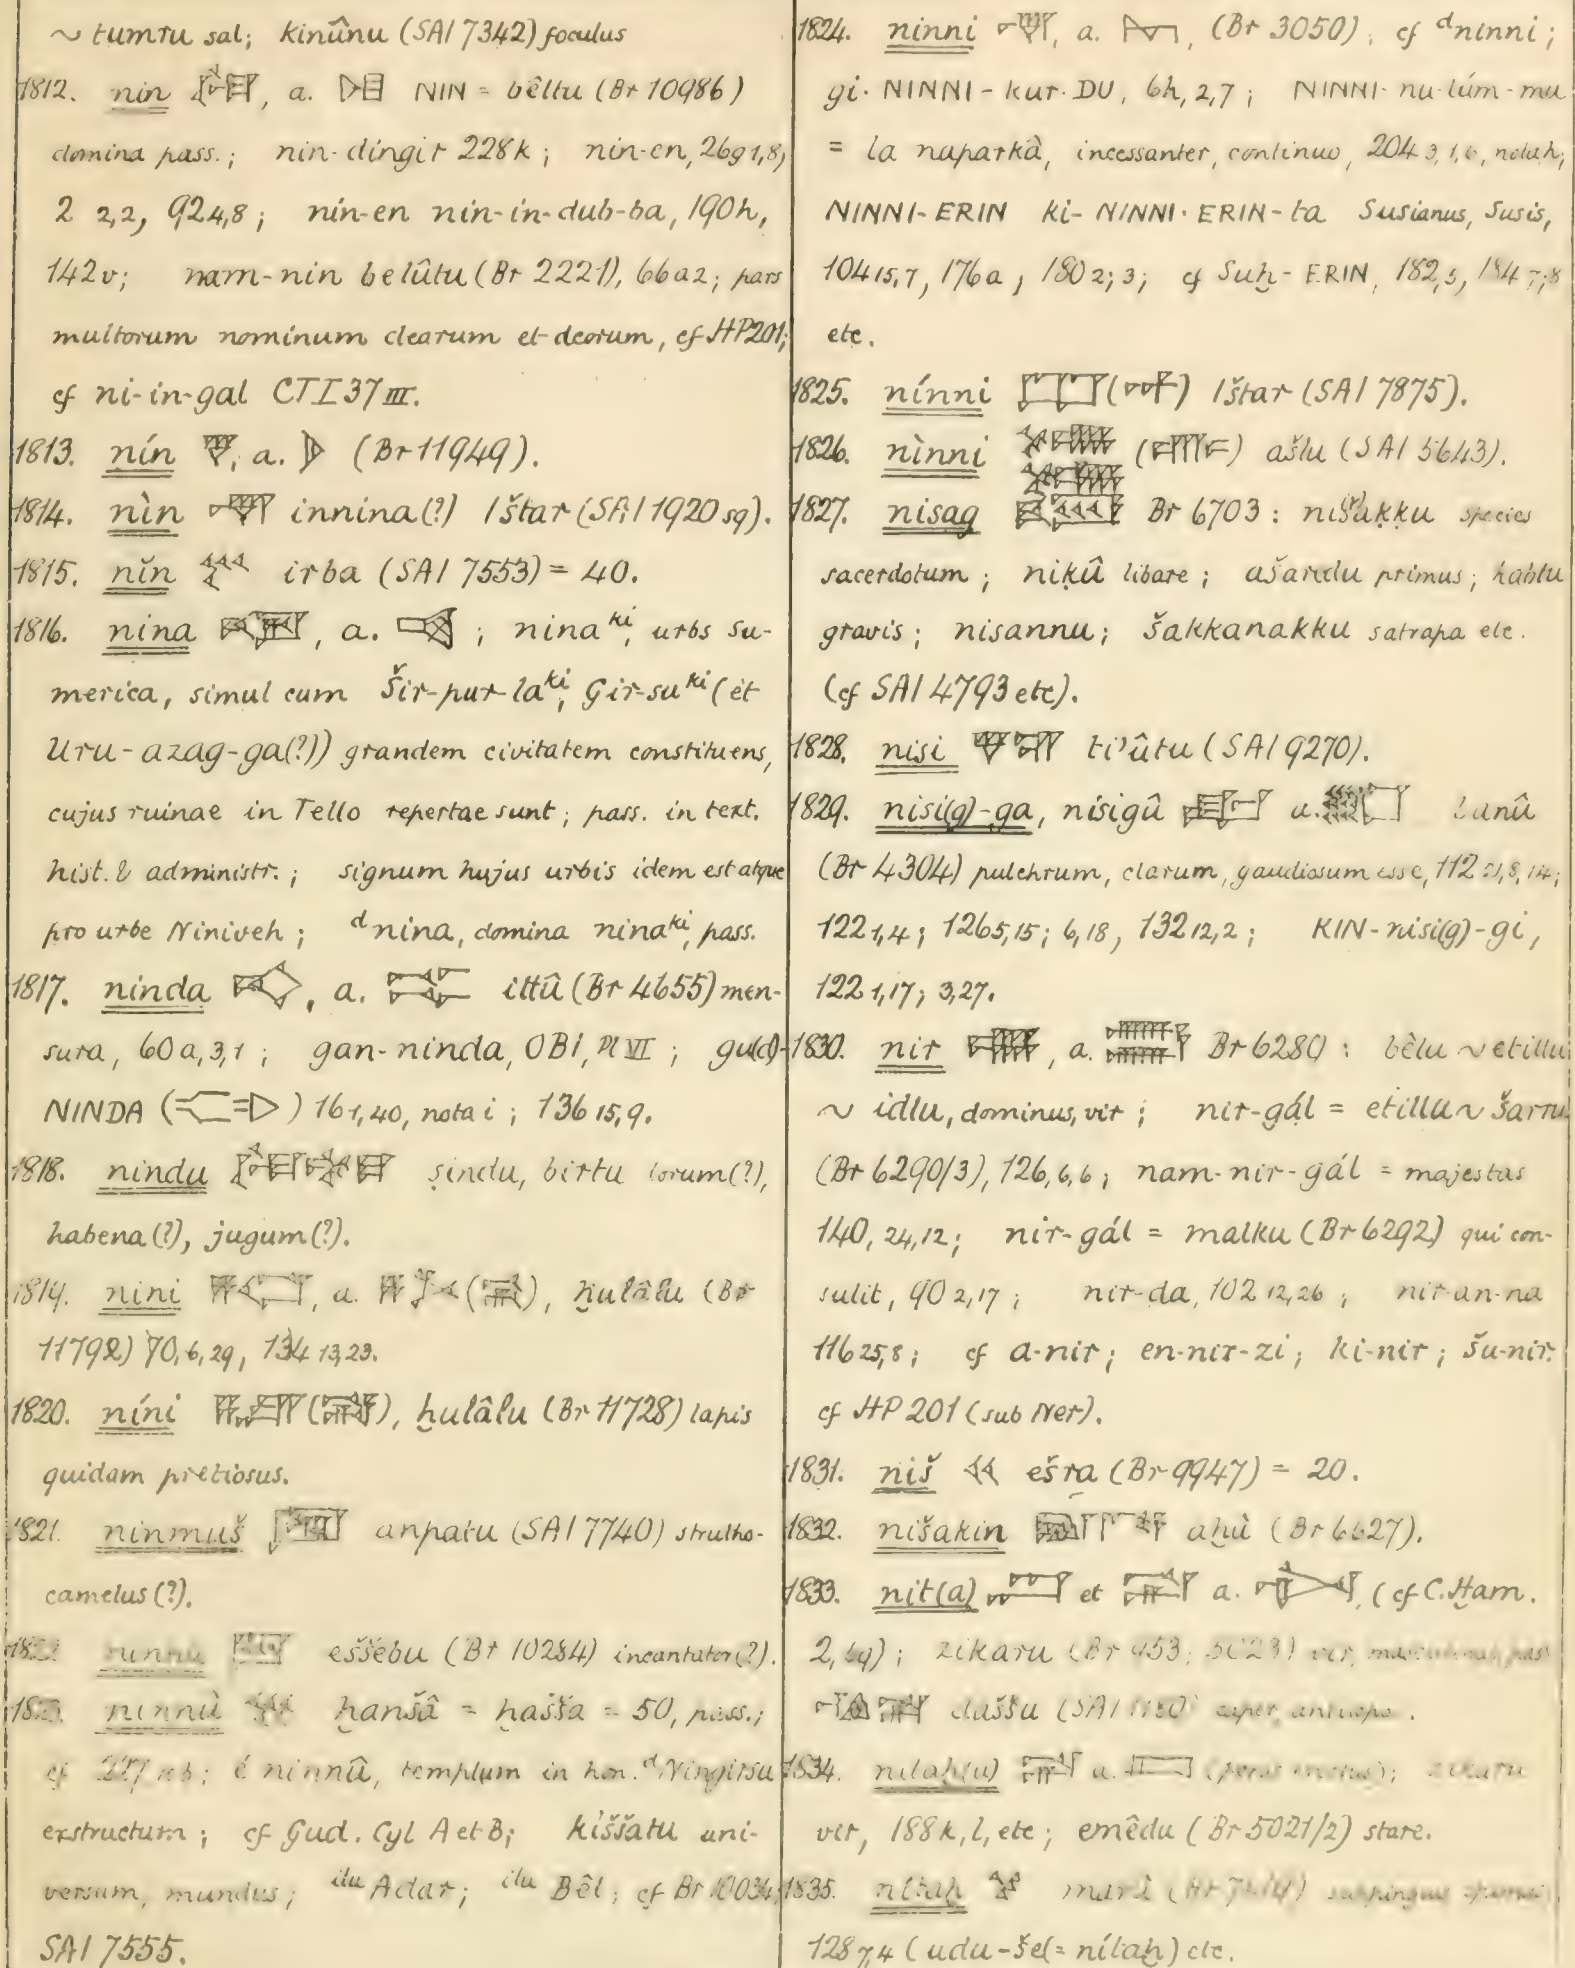 ~ tumru sal; kinûnu (SAI 7342) foculus
1812. nin, a. NIN = bêltu (Br 10986)
domina pass.; nin-dingir 228k; nin-en, 26g 1,8,
2 2,2, 92 4,8; nin-en nin-in-dub-ba, 190h,
142v; nam-nin belûtu (Br 2221), 66a2; pars
multorum nominum dearum et deorum, cf HP 201;
cf ni-in-gal CT I 37 III.
1813. nín, a. (Br 11949).
1814. nìn innina(?) Ištar (SAI 1920 sq).
1815. nĭn irba (SAI 7553) = 40.
1816. nina, a. ; nina ki, urbs su-
merica, simul cum Šir-pur-la ki, Gir-su ki (et
Uru-azag-ga(?)) grandem civitatem constituens,
cujus ruinae in Tello repertae sunt; pass. in text.
hist. & administr.; signum hujus urbis idem est atque
pro urbe Niniveh; d nina, domina nina ki, pass.
1817. ninda, a. ittû (Br 4655) men-
sura, 60a,3,1; gan-ninda, OBI, Pl VI; gu(d)-
NINDA ( ) 16 1,40, nota i; 136 15,9.
1818. nindu ṣindu, birtu lorum(?),
habena(?), jugum(?).
1819. nini, a. ( ), ḫulâlu (Br
11792) 70,6,29, 134 13,23.
1820. níni ( ), ḫulâlu (Br 11728) lapis
quidam pretiosus.
1821. ninmuš anpatu (SAI 7740) strutho-
camelus(?).
eššebu (Br 10284) incantator(?).
ninnû ḫanšâ = ḫašša = 50, pass.;
cf é ninnû, templum in hon. d Ningirsu
exstructum; cf Gud. Cyl A et B; kiššatu uni-
versum, mundus; ilu Adar; ilu Bêl; cf Br 10034,
SAI 7555.
1824. ninni, a. , (Br 3050), cf d ninni;
gi. NINNI-kur. DU, 6h, 2,7; NINNI-nu-lúm-mu
= la naparkâ, incessanter, continuo, 204 3,1,6, nota h;
NINNI-ERIN ki-NINNI. ERIN-ta Susianus, Susis,
104 15,7, 176a, 180 2;3; cf Suḫ-ERIN, 182,5, 184 7;8
etc.
1825. nínni ( ) Ištar (SAI 7875).
1826. nìnni ( ) ašlu (SAI 5643).
1827. nisag Br 6703: nišakku species
sacerdotum; niḳû libare; ašaridu primus; kabtu
gravis; nisannu; šakkanakku satrapa etc.
(cf SAI 4793 etc).
1828. nisi ti'ûtu (SAI 9270).
1829. nisi(g)-ga, nisigû a. banû
(Br 4304) pulchrum, clarum, gaudiosum esse, 112 21,8,14;
122 1,4; 126 5,15; 6,18, 132 12,2; KIN-nisi(g)-gi,
122 1,17; 3,27.
1830. nir, a. Br 6280: bêlu ~ etillu
~ idlu, dominus, vir; nir-gál = etillu ~ šarru
(Br 6290/3), 126,6,6; nam-nir-gál = majestas
140, 24,12; nir-gál = malku (Br 6292) qui con-
sulit, 90 2,17; nir-da, 102 12,26; nir-an-na
116 25,8; cf a-nir; en-nir-zi; ki-nir; šu-nir.
cf HP 201 (sub Ner).
1831. niš ešra (Br 9947) = 20.
1832. nišakin aḫû (Br 6627).
1833. nit(a) et a. , (cf C. Ham.
2, 69); zikaru (Br 953; 5023) vir,
daššu (SAI 1180) caper,
1834. nitaḫ(u) a. ; zikaru
vir, 188k, l, etc; emêdu (Br 5021/2) stare.
1835. nítaḫ marû
128 7,4 (udu-še(= nítaḫ) etc.